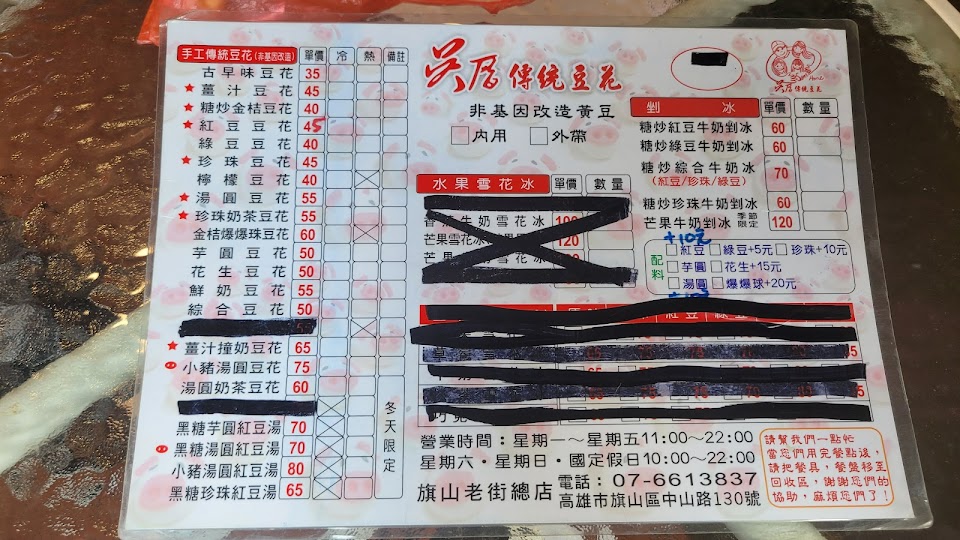 手工傳統豆花(非基因改造) 單價 冷 熱 備註
古早味豆花 35
薑汁豆花 45
糖炒金桔豆花 40
紅豆豆花 45
綠豆豆花 40
珍珠豆花 45
檸檬豆花 40
湯圓豆花 55
珍珠奶茶豆花 55
金桔爆爆珠豆花 60
芋圓豆花 50
花生豆花 50
鮮奶豆花 55
綜合豆花 50
薑汁撞奶豆花 65
小豬湯圓豆花 75
湯圓奶茶豆花 60
黑糖芋圓紅豆湯 70
黑糖湯圓紅豆湯 70
小豬湯圓紅豆湯 80
黑糖珍珠紅豆湯 65
冬天限定
吴居傳統豆花
非基因改造黃豆
內用 外帶
水果雪花冰 單價 數量
牛奶雪花冰
芒果雪花冰 120
吴居傳統豆花
剉冰 單價 數量
糖炒紅豆牛奶剉冰 60
糖炒綠豆牛奶剉冰 60
糖炒綜合牛奶冰 70
(紅豆/珍珠/綠豆)
糖炒珍珠牛奶剉冰 60
芒果牛奶剉冰 季節限定 120
+10元
配料
紅豆 綠豆+5元 珍珠+10元
芋圓 花生+15元
湯圓 爆爆球+20元
營業時間：星期一～星期五11:00～22:00
星期六・星期日・國定假日10:00～22:00
旗山老街總店
電話：07-6613837
高雄市旗山區中山路130號
請幫我們一點忙
當您們用完餐點後,
請把餐具，餐盤移至
回收區，謝謝您們的
協助，麻煩您們了！